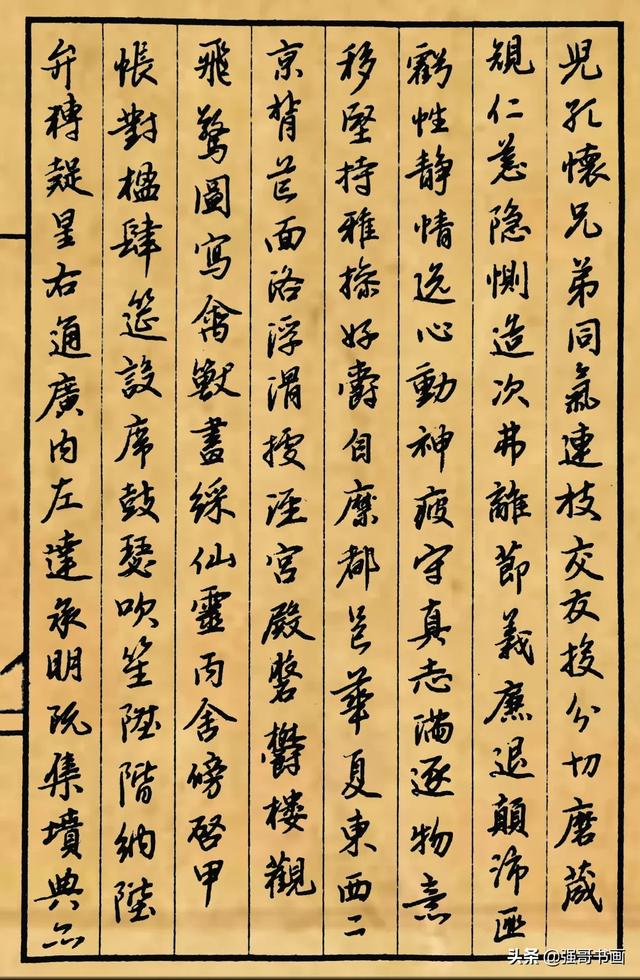 兒孔懷兄弟同氣連枝交友投分切磨葴
規仁慈隐惻造次弗離節義廉退顛沛匪
虧性静情逸心動神疲守真志滿逐物意
移堅持雅操好爵自縻都邑華夏東西二
京背芒面洛浮渭據涇宮殿磐欝樓觀
飛驚圖寫禽獸畫綵仙靈丙舍傍啓甲
帳對楹肆筵設席鼓瑟吹笙陞階納陛
弁轉疑星右通廣内左達承明既集墳典亦
头条 @强哥书画